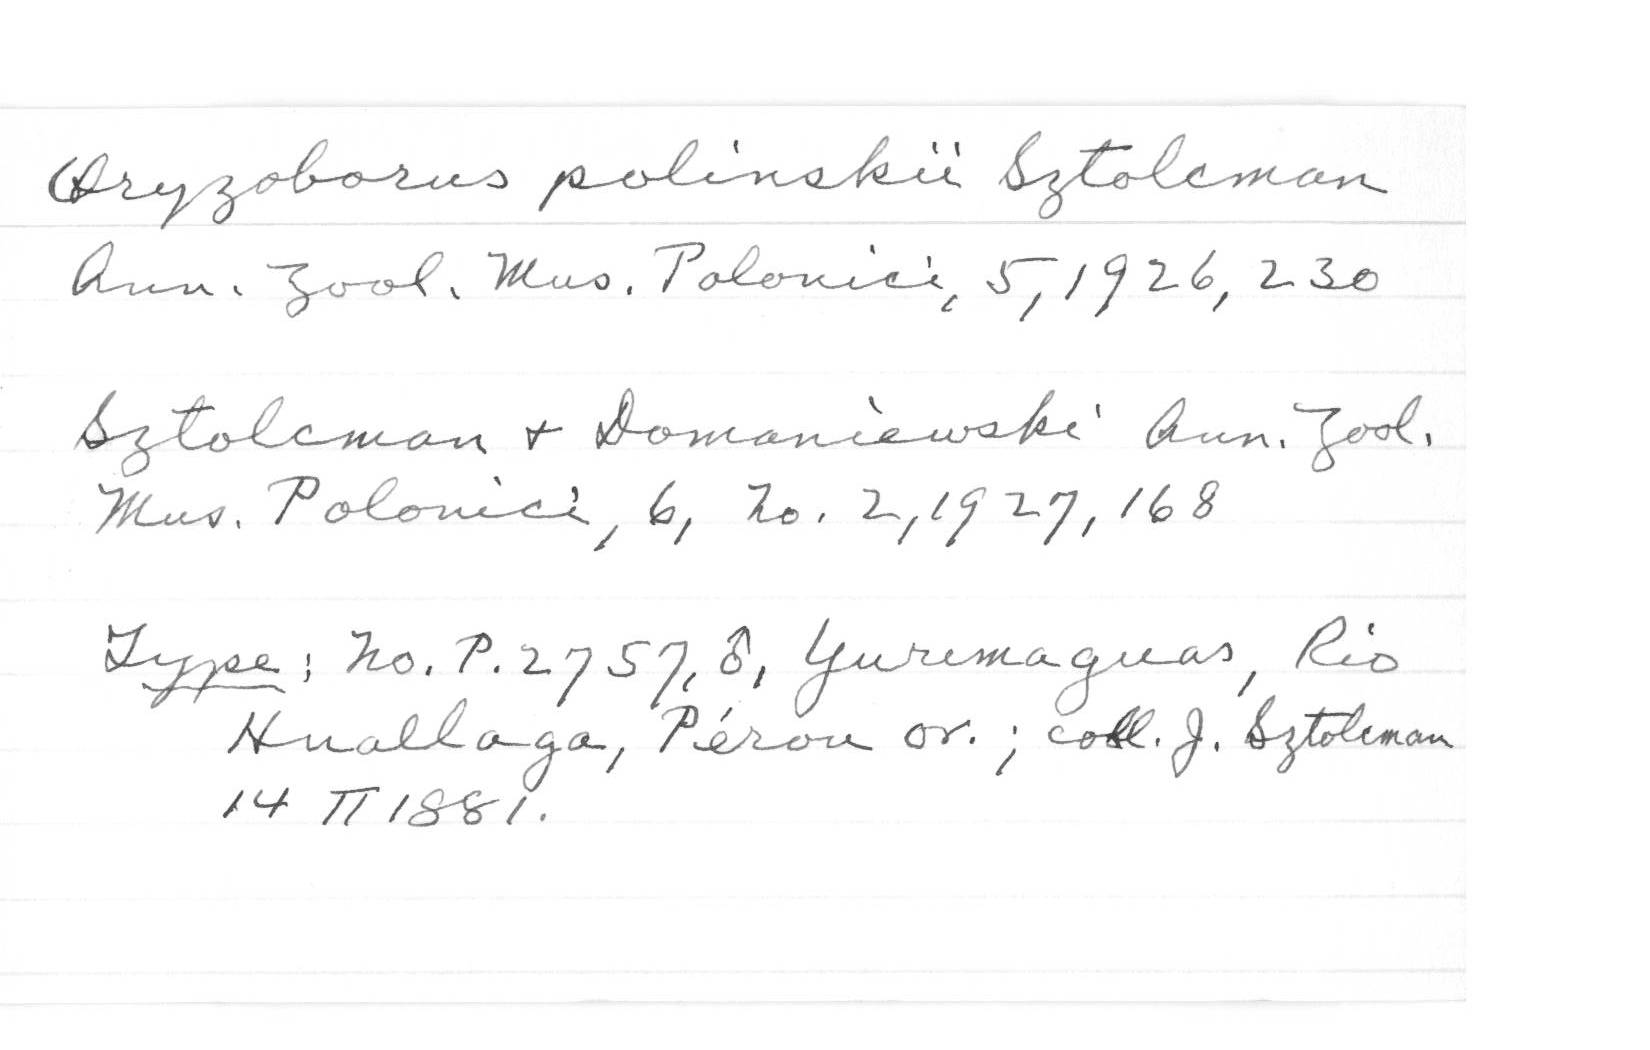 Oryzoborus polinskii Sztolcman
Ann. Zool. Mus. Polonici, 5, 1926, 230
Sztolcman + Domaniewski Ann. Zool.
Mus. Polonici, 6, No. 2, 1927, 168
Type; No. P. 2757, ♂, Yurimaguas, Rio
Huallaga, Pérou or.; coll. J. Sztolcman
14 II 1881.